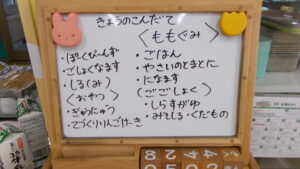 きょうのこんだて
・ぽくびーんず
・ごしょくなます
・しる(み)
(おやつ)
・ぎゅうにゅう
・てづくりりんごけーき
〈ももぐみ〉
・ごはん
・やさいのとまとに
・になます
(ごごしょく)
・しらすがゆ
・みそしる・くだもの